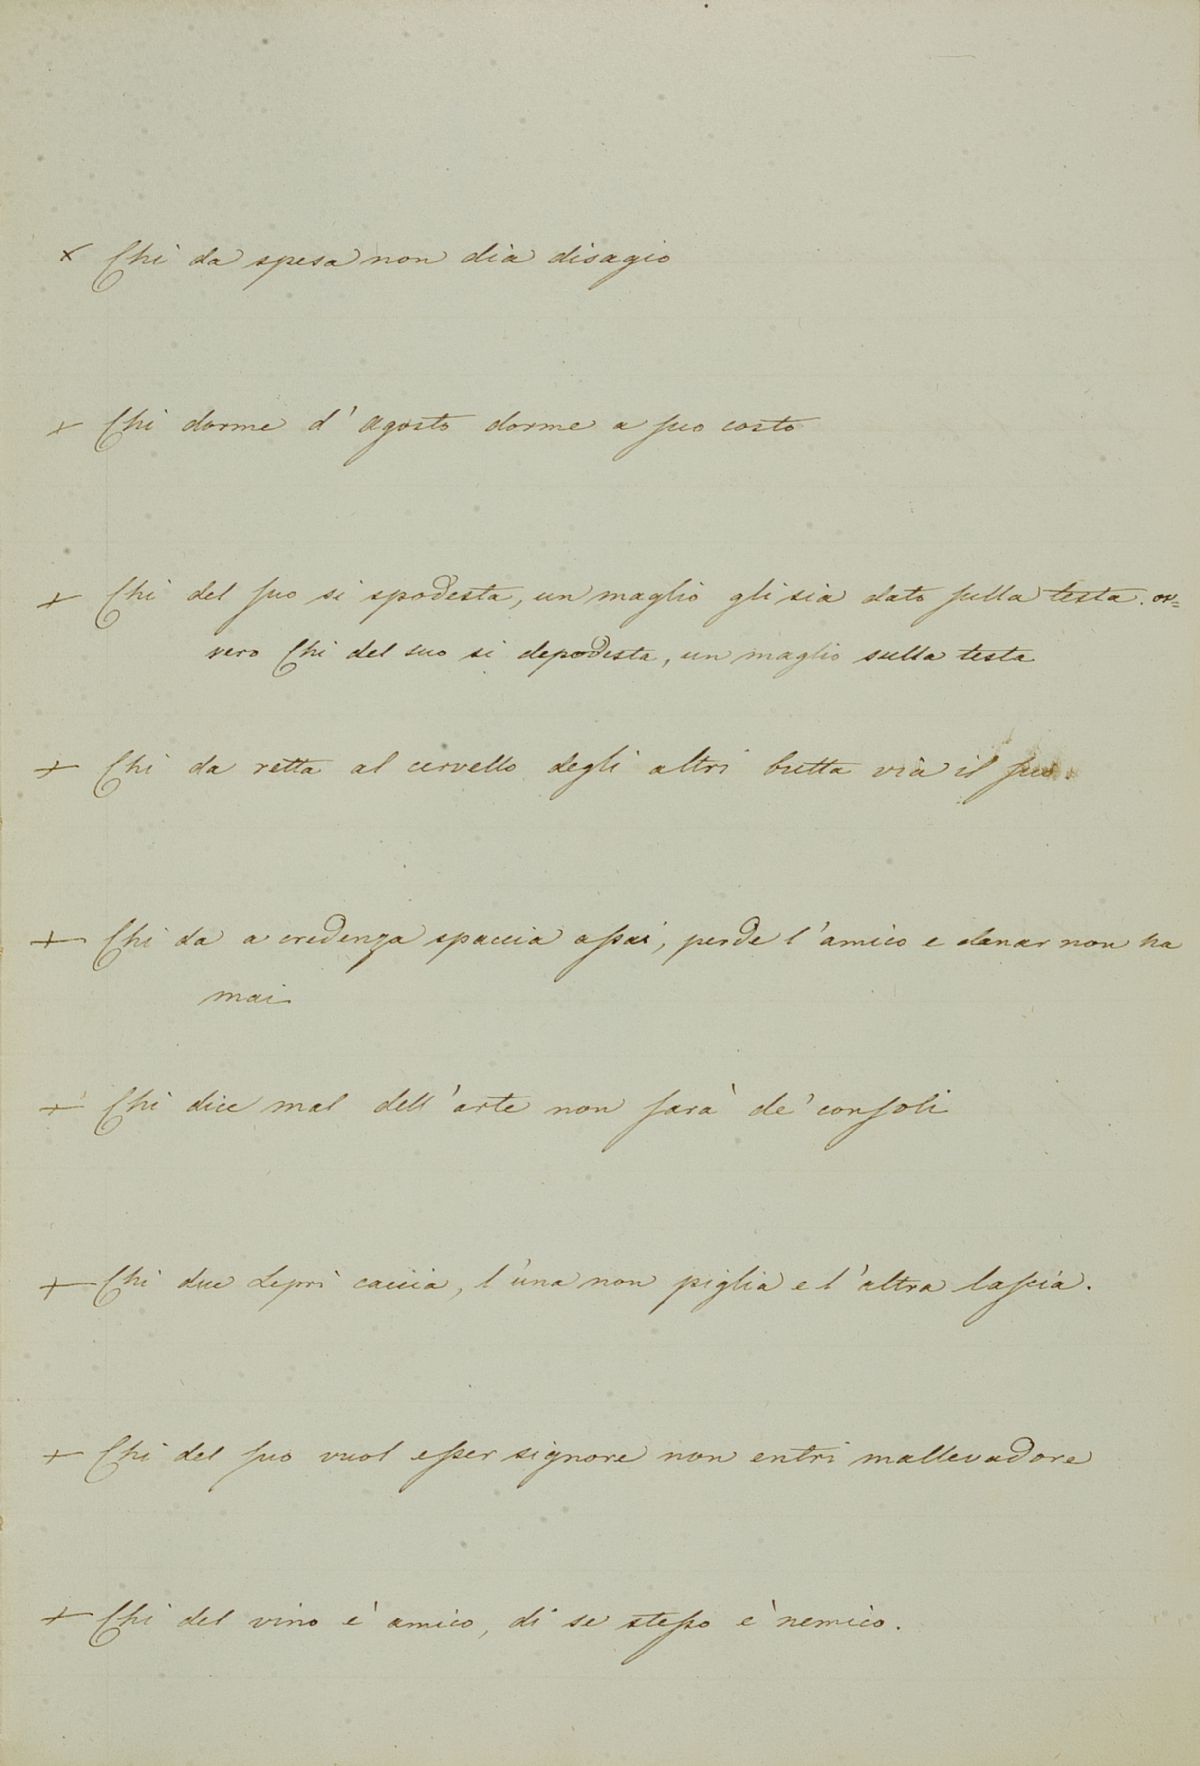 × Chi da spesa non dia disagio
+ Chi dorme d'Agosto dorme a suo costo
+ Chi del suo si spodesta, un maglio gli sia dato sulla testa. ov=
vero Chi del suo si depodesta, un maglio sulla testa
+ Chi da retta al cervello degli altri butta via il suo.
+ Chi da a credenza spaccia assai, perde l'amico e danar non ha
mai
+ Chi dice mal dell'arte non sarà de' consoli
+ Chi due Lepri caccia, l'una non piglia e l'altra lascia.
+ Chi del suo vuol esser signore non entri mallevadore
+ Chi del vino è amico, di se stesso è nemico.